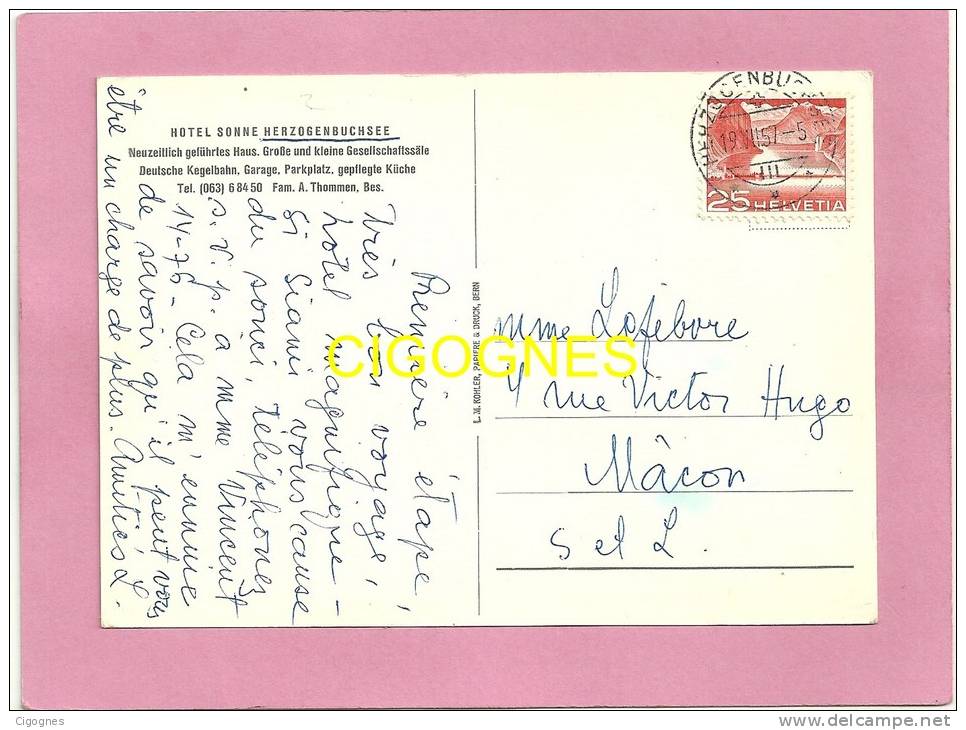 HOTEL SONNE HERZOGENBUCHSEE
Neuzeitlich geführtes Haus. Große und kleine Gesellschaftssäle
Deutsche Kegelbahn, Garage, Parkplatz, gepflegte Küche
Tel. (063) 6 84 50 Fam. A. Thommen, Bes.
Première étape,
Très bon voyage,
hôtel magnifique –
Si Siami vous cause
du souci, téléphonez
s. v. p. a mme Vincent
14-75. Cela m'ennuie
de savoir qu'il peut vous
être un charge de plus. Amitiés L.
L. M. KOHLER, PAPIERE & DRUCK, BERN
HERZOGENBUCHSEE
57-5
25 HELVETIA
mme Lefebvre
4 rue Victor Hugo
Mâcon
S et L.
CIGOGNES
Cigognes
www.delcampe.net